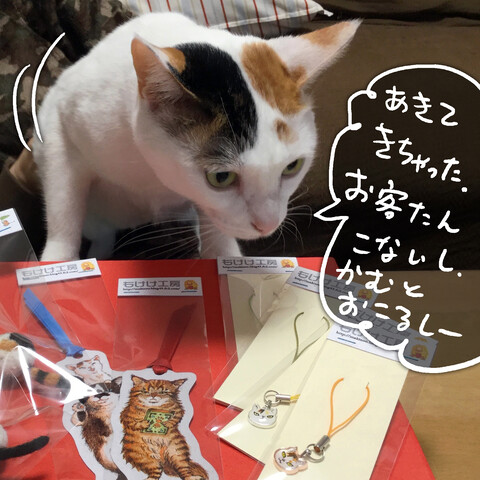 あきて
きちゃった。
お客たん
こないし、
かむと
おこるしー
もけけ工房
もけけ工房
もけけ工房
もけけ工房